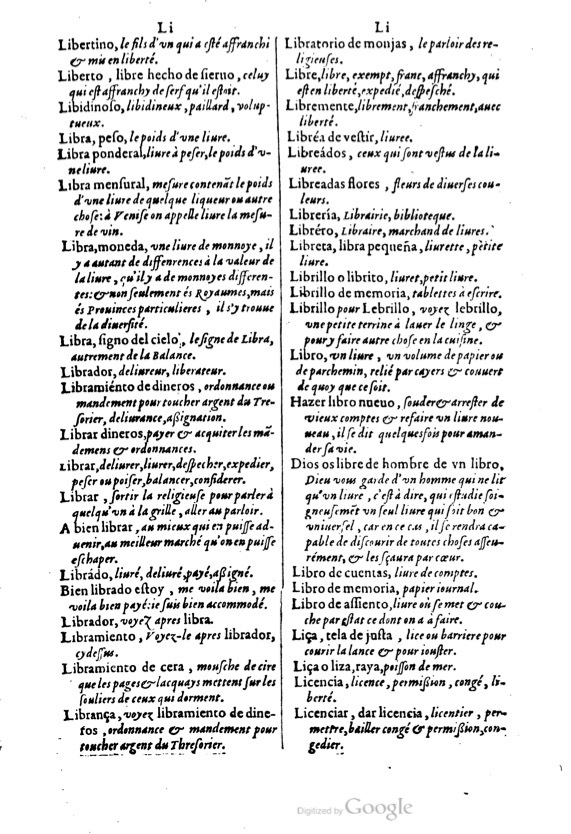 Li
Libertino, le fils d'vn qui a esté affranchi
& mis en liberté.
Liberto, libre hecho de sieruo, celuy
qui est affranchy de serf qu'il estoit.
Libidinoso, libidineux, paillard, volup-
tueux.
Libra, peso, le poids d'vne liure.
Libra ponderal, liure à peser, le poids d'v-
ne liure.
Libra mensural, mesure contenāt le poids
d'vne liure de quelque liqueur ou autre
chose: à Venise on appelle liure la mesu-
re de vin.
Libra, moneda, vne liure de monnoye, il
y a autant de diffenrences à la valeur de
la liure, qu'il y a de monnoyes differen-
tes: & non seulement és Royaumes, mais
és Prouinces particulieres, il s'y trouue
de la diuersité.
Libra, signo del cielo, le signe de Libra,
autrement de la Balance.
Librador, deliureur, liberateur.
Libramiénto de dineros, ordonnance ou
mandement pour toucher argent du Tre-
sorier, deliurance, aßignation.
Librar dineros, payer & acquiter les mā-
demens & ordonnances.
Librar, deliurer, liurer, despecher, expedier,
peser ou poiser, balancer, considerer.
Librar, sortir la religieuse pour parler à
quelqu'vn à la grille, aller au parloir.
A bien librar, au mieux qui en puisse ad-
uenir, au meilleur marché qu'on en puisse
eschaper.
Librádo, liuré, deliuré, payé, aßigné.
Bien librado estoy, me voila bien, me
voila bien payé: ie suis bien accommodé.
Librador, voyez apres libra.
Libramiento, Voyez-le apres librador,
cy dessus.
Libramiento de cera, mousche de cire
que les pages & lacquays mettent sur les
souliers de ceux qui dorment.
Librança, voyez libramiento de dine-
ros, ordonnance & mandement pour
toucher argent du Thresorier.
Li
Libratorio de monjas, le parloir des re-
ligieuses.
Libre, libre, exempt, franc, affranchy, qui
est en liberté, expedié, despesché.
Libremente, librement, franchement, auec
liberté.
Libréa de vestir, liuree.
Libreádos, ceux qui sont vestus de la li-
uree.
Libreadas flores, fleurs de diuerses cou-
leurs.
Librería, Librairie, biblioteque.
Libréro, Libraire, marchand de liures.
Libreta, libra pequeña, liurette, petite
liure.
Librillo o librito, liuret, petit liure.
Librillo de memoria, tablettes à escrire.
Librillo pour Lebrillo, voyez lebrillo,
vne petite terrine à lauer le linge, &
pour y faire autre chose en la cuisine.
Libro, vn liure, vn volume de papier ou
de parchemin, relié par cayers & couuert
de quoy que ce soit.
Hazer libro nueuo, souder & arrester de
vieux comptes & refaire vn liure nou-
ueau, il se dit quelquesfois pour aman-
der sa vie.
Dios os libre de hombre de vn libro,
Dieu vous garde d'vn homme qui ne lit
qu'vn liure, c'est à dire, qui estudie soi-
gneusemēt vn seul liure qui soit bon &
vniuersel, car en ce cas, il se rendra ca-
pable de discourir de toutes choses asseu-
rément, & les sçaura par cœur.
Libro de cuentas, liure de comptes.
Libro de memoria, papier iournal.
Libro de assiento, liure où se met & cou-
che par estat ce dont on a à faire.
Liça, tela de justa, lice ou barriere pour
courir la lance & pour iouster.
Liça o liza, raya, poisson de mer.
Licencia, licence, permißion, congé, li-
berté.
Licenciar, dar licencia, licentier, per-
mettre, bailler congé & permißion, con-
gedier.
Digitized by Google